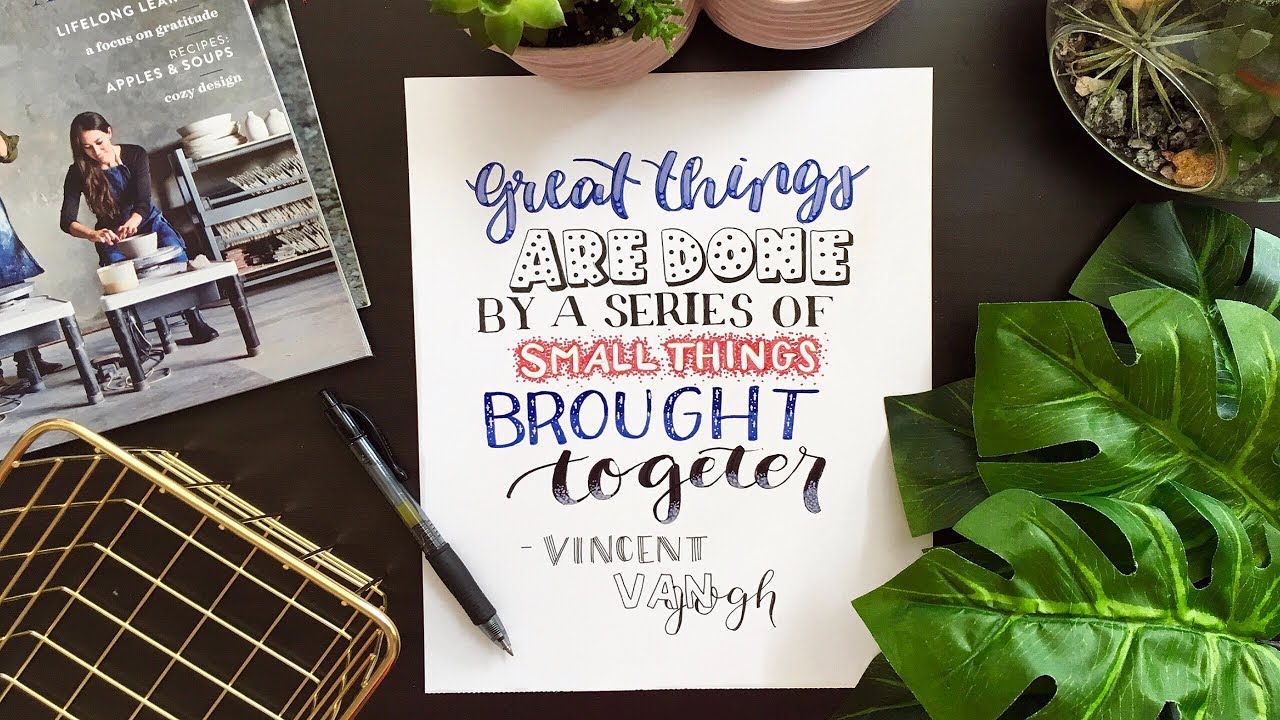 LIFELONG
a focus on gratitude
RECIPES:
APPLES & SOUPS
cozy design
Great things
ARE DONE
BY A SERIES OF
SMALL THINGS
BROUGHT
togeter
- VINCENT
VAN gogh